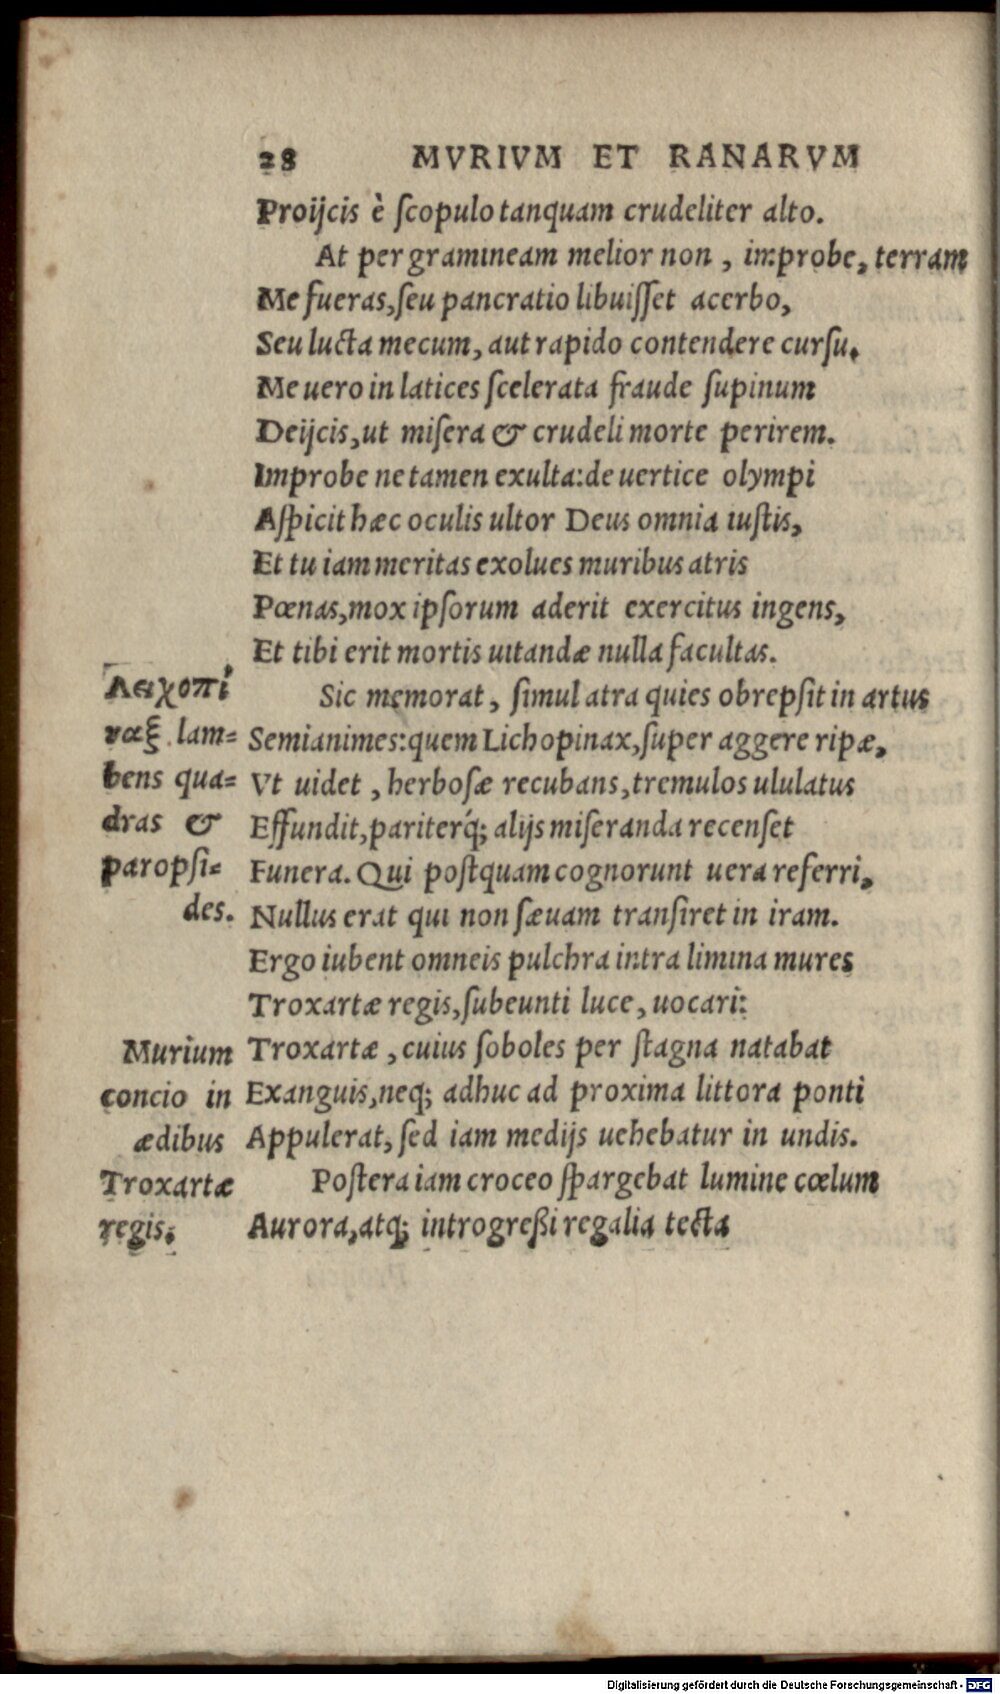 28 MVRIVM ET RANARVM
Proijcis è ſcopulo tanquam crudeliter alto.
At per gramineam melior non, improbe, terram
Me fueras, ſeu pancratio libuiſſet acerbo,
Seu lucta mecum, aut rapido contendere curſu.
Me uero in latices ſcelerata fraude ſupinum
Deijcis, ut miſera & crudeli morte perirem.
Improbe ne tamen exulta: de uertice olympi
Aſpicit hæc oculis ultor Deus omnia iuſtis,
Et tu iam meritas exolues muribus atris
Pœnas, mox ipſorum aderit exercitus ingens,
Et tibi erit mortis uitandæ nulla facultas.
Sic memorat, ſimul atra quies obrepſit in artus
Semianimes: quem Lichopinax, ſuper aggere ripæ,
Vt uidet, herboſæ recubans, tremulos ululatus
Effundit, pariterq́; alijs miſeranda recenſet
Funera. Qui poſtquam cognorunt uera referri,
Nullus erat qui non ſæuam tranſiret in iram.
Ergo iubent omneis pulchra intra limina mures
Troxartæ regis, ſubeunti luce, uocari:
Troxartæ, cuius ſoboles per ſtagna natabat
Exanguis, neq; adhuc ad proxima littora ponti
Appulerat, ſed iam medijs uehebatur in undis.
Poſtera iam croceo ſpargebat lumine cœlum
Aurora, atq; introgreßi regalia tecta
Λειχοπί
ναξ lam=
bens qua=
dras &
paropſi=
des.
Murium
concio in
ædibus
Troxartæ
regis.
Digitalisierung gefördert durch die Deutsche Forschungsgemeinschaft - DFG